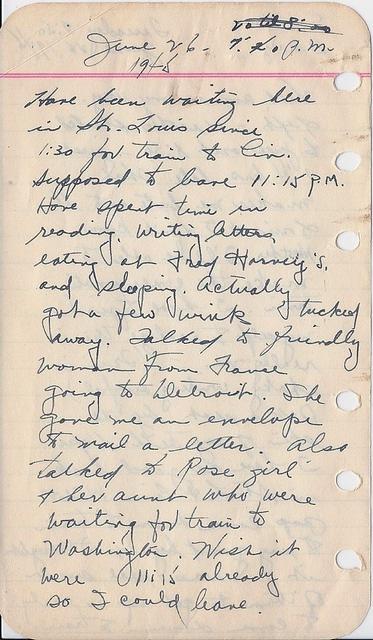 June 26 - 7:40 P.M.
1945
Have been waiting here
in St. Louis since
1:30 for train to Cin.
Supposed to leave 11:15 P.M.
Have spent time in
reading, writing letters,
eating at Fred Harvey's,
and sleeping. Actually
got a few wink tucked
away. Talked to friendly
woman from France
going to Detroit. She
gave me an envelope
to mail a letter. Also
talked to Rose girl
& her aunt who were
waiting for train to
Washington. Wish it
were 11:15 already
so I could leave.